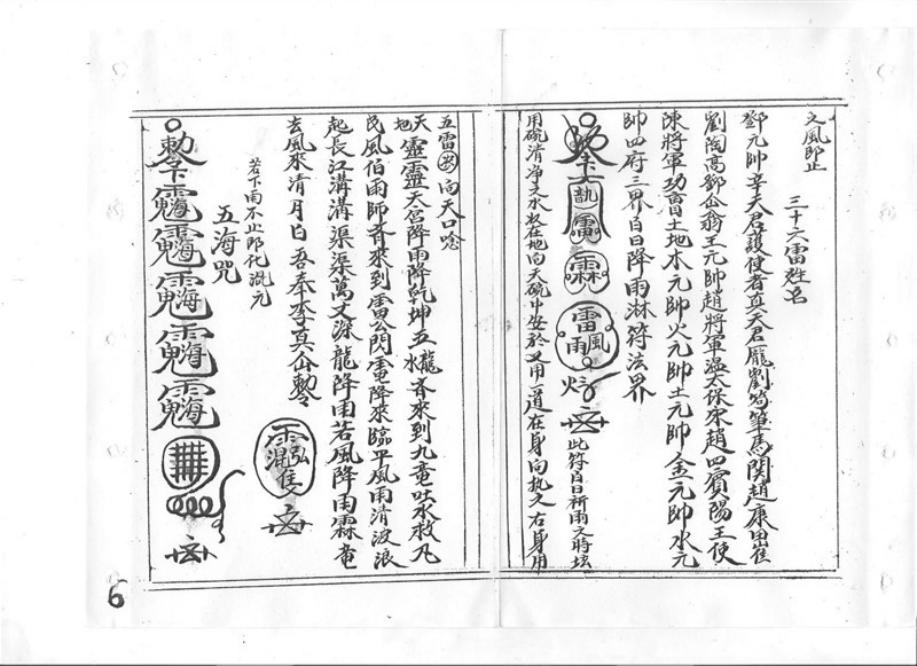 之風即止
三十六雷姓名
鄧元帥辛天君護使者真天君龐劉苟畢馬関趙康田崔
劉陶高鄧仙翁王元帥趙將軍溫太保宋趙四賓陽王使
陳將軍功曹土地木元帥火元帥土元帥金元帥水元
帥四府三界自日降雨淋符法界
此符白日祈雨之時坛
用硫清净之水放在地向天硫中安於又用一道在身向执之右身用
五雷 向天口唸
天地靈靈天宫降雨降乾坤五龍水斉來到九竜吐水救凡
民風伯雨師斉來到雷公閃電降來臨平風雨清波浪
起長江溝溝渠渠萬丈深龍降雨若風降雨霖竜
去風來清月白吾奉李真仙勅令
若下雨不止即化混元
五海咒
6